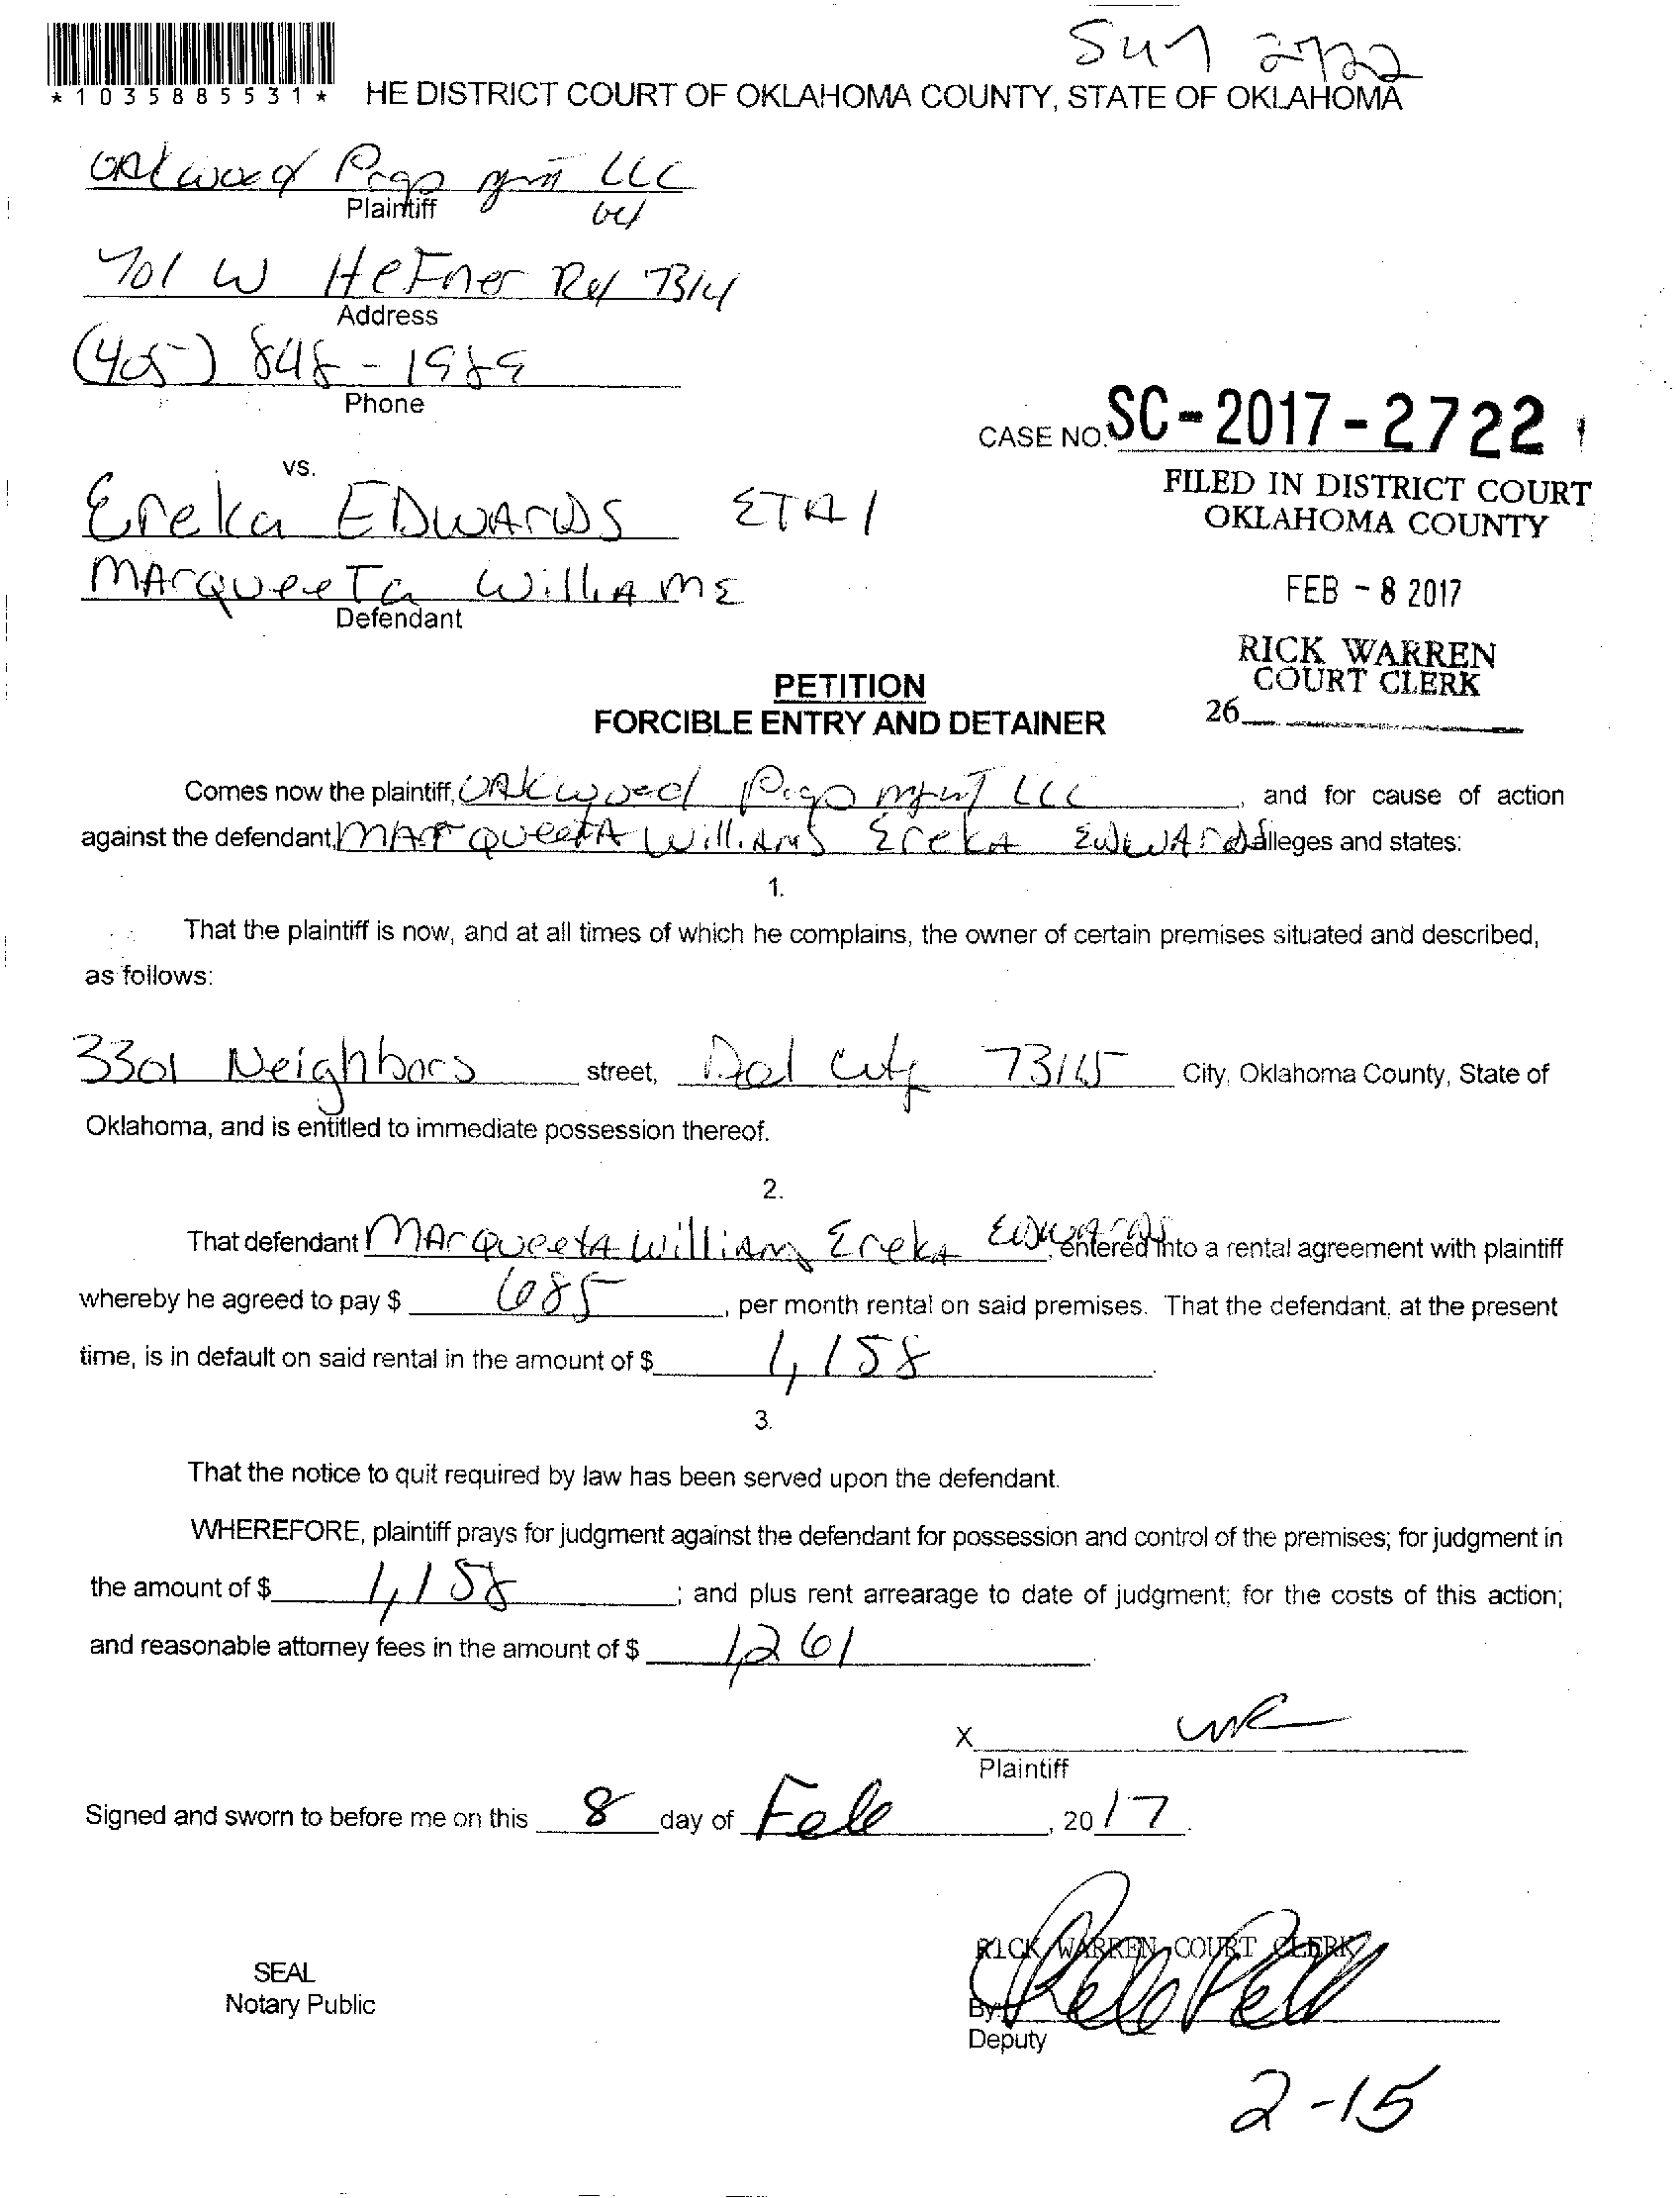 *1035885531*
HE DISTRICT COURT OF OKLAHOMA COUNTY, STATE OF OKLAHOMA
OAkwood Prop mgmt LLC
Plaintiff
701 W HeFner Rd 73114
Address
(405) 848-1989
Phone
CASE NO. SC-2017-2722
vs.
FILED IN DISTRICT COURT
OKLAHOMA COUNTY
Ereka EDWARDS ETAl
MArqueeTa WilliAmS
Defendant
FEB - 8 2017
RICK WARREN
COURT CLERK
26
PETITION
FORCIBLE ENTRY AND DETAINER
Comes now the plaintiff, OAkwood Prop mgmT LLC, and for cause of action
against the defendant, MArqueetA WilliAmS EreKA EdwArds alleges and states:
1.
That the plaintiff is now, and at all times of which he complains, the owner of certain premises situated and described,
as follows:
3301 Neighbors street, Del City 73115 City, Oklahoma County, State of
Oklahoma, and is entitled to immediate possession thereof.
2.
That defendant MArqueetA WilliAms EreKA EdwARDS, entered into a rental agreement with plaintiff
whereby he agreed to pay $ 685, per month rental on said premises. That the defendant, at the present
time, is in default on said rental in the amount of $ 1,158.
3.
That the notice to quit required by law has been served upon the defendant.
WHEREFORE, plaintiff prays for judgment against the defendant for possession and control of the premises; for judgment in
the amount of $ 1,158; and plus rent arrearage to date of judgment; for the costs of this action;
and reasonable attorney fees in the amount of $ 1,261.
X
Plaintiff
Signed and sworn to before me on this 8 day of Feb, 2017.
RICK WARREN, COURT CLERK
SEAL
Notary Public
By:
Deputy
2-15